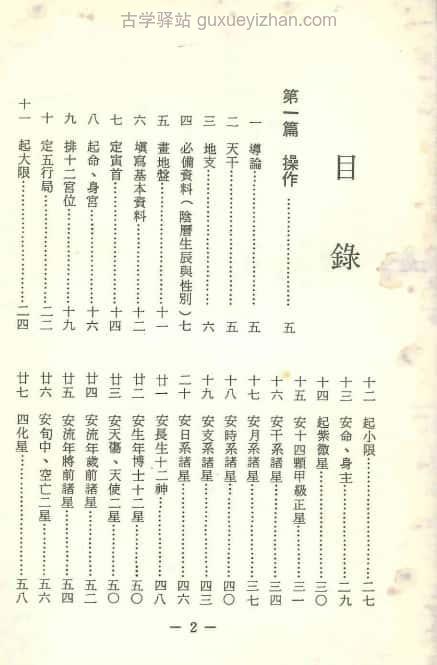 古学驿站 guxueyizhan.com
目錄
第一篇 操作……………………五
一 導論……………………五
二 天干……………………五
三 地支……………………六
四 必備資料(陰曆生辰與性別)七
五 畫地盤……………………十一
六 填寫基本資料……………………十二
七 定寅首……………………十四
八 起命、身宮……………………十六
九 排十二宮位……………………十九
十 定五行局……………………二二
十一 起大限……………………二四
十二 起小限……………………二七
十三 安命、身主……………………二九
十四 起紫微星……………………三〇
十五 安十四顆甲級正星……………………三一
十六 安干系諸星……………………三四
十七 安月系諸星……………………三七
十八 安時系諸星……………………四〇
十九 安支系諸星……………………四三
二十 安日系諸星……………………四六
廿一 安長生十二神……………………四八
廿二 安生年博士十二星……………………五〇
廿三 安天傷、天使二星……………………五〇
廿四 安流年歲前諸星……………………五二
廿五 安流年將前諸星……………………五四
廿六 安旬中、空亡二星……………………五六
廿七 四化星……………………五八
— 2 —